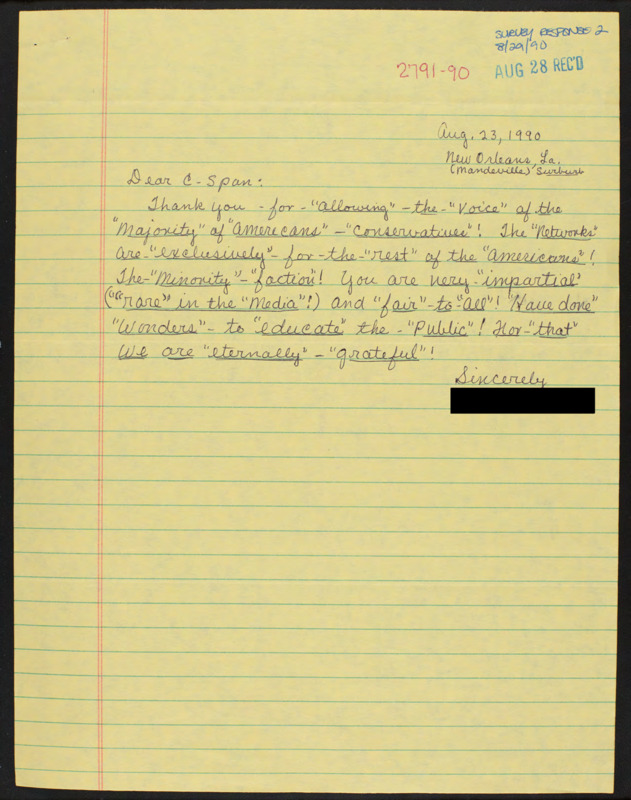 SURVEY RESPONSE 2
8/29/90
2791-90
AUG 28 REC'D
Aug. 23, 1990
New Orleans, La.
(Mandeville) Surburb
Dear C-Span:
Thank you - for - "allowing" - the - "Voice" of the
"Majority" of "Americans" - "Conservatives"! The "Networks"
are - "exclusively" - for - the - "rest" of the "Americans"!
The - "Minority" - "faction"! You are very "impartial"
("rare" in the "Media"!) and "fair" - to - "all"! "Have done"
"Wonders" - to "educate" the - "Public"! For - "that"
We are "eternally" - "grateful"!
Sincerely